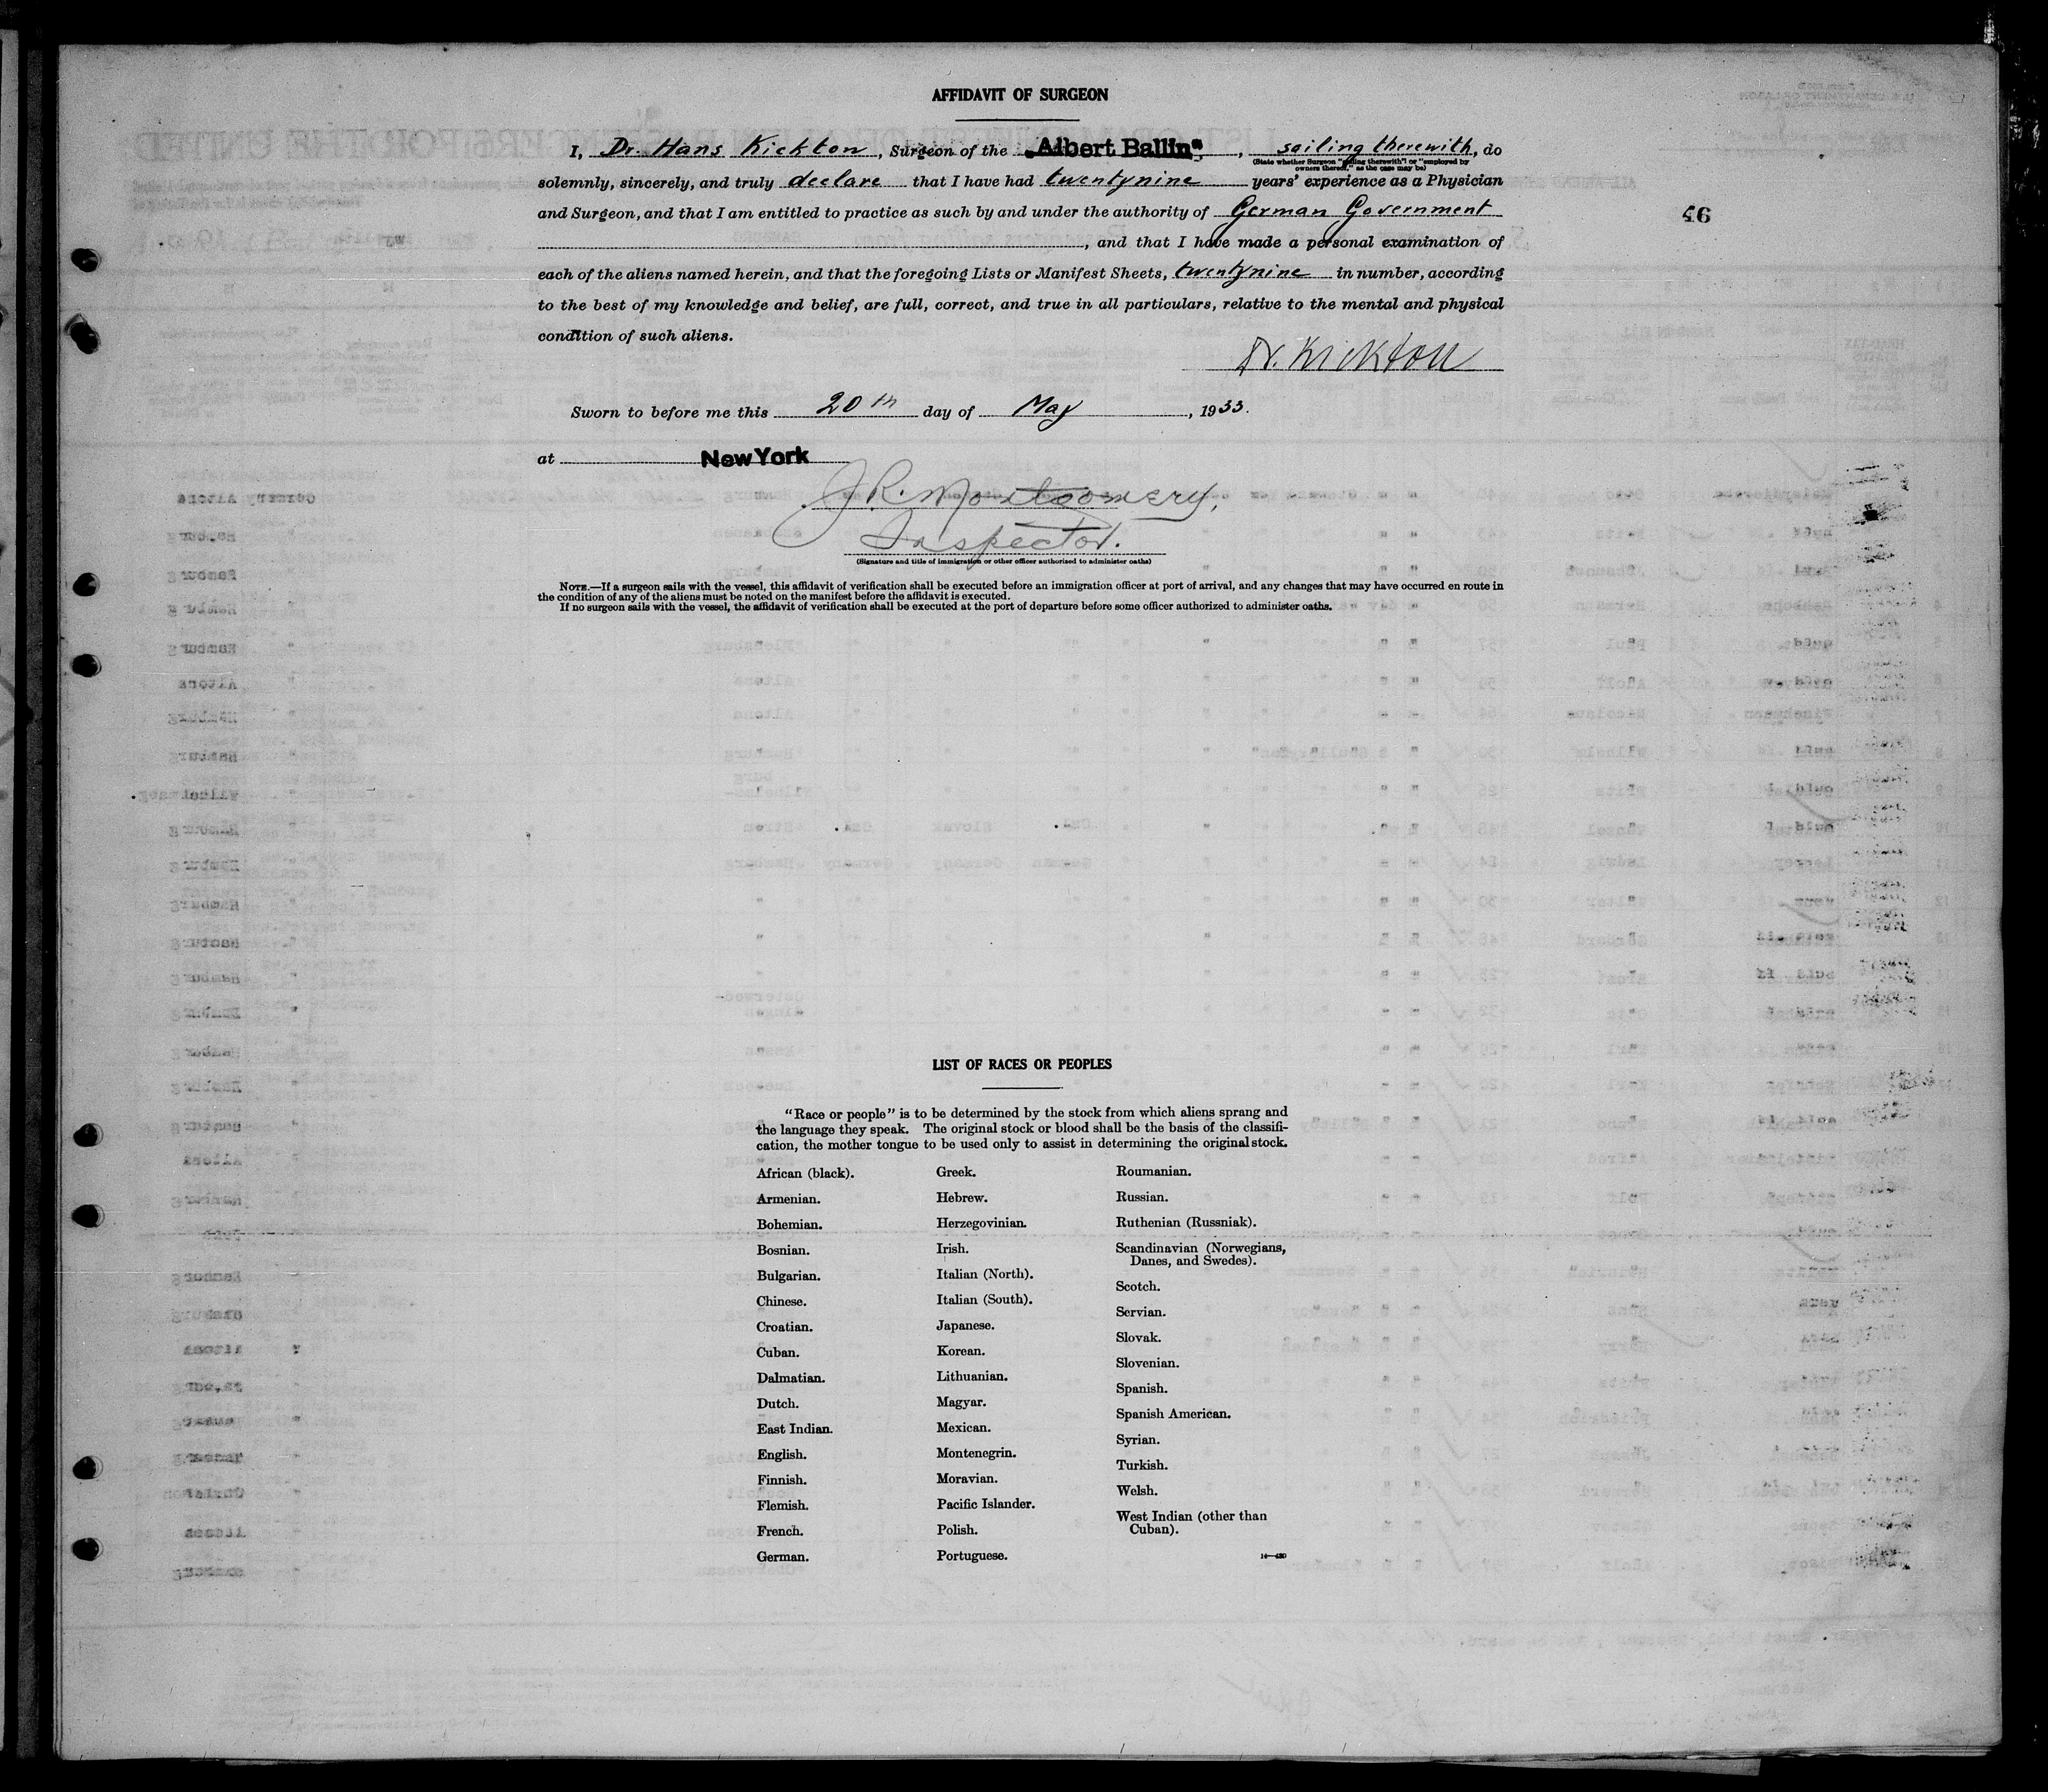 AFFIDAVIT OF SURGEON
I, Dr. Hans Kickton, Surgeon of the "Albert Ballin", sailing therewith, do
(State whether Surgeon "sailing therewith" or "employed by
owners thereof," as the case may be)
solemnly, sincerely, and truly declare that I have had twentynine years' experience as a Physician
and Surgeon, and that I am entitled to practice as such by and under the authority of German Government
46
, and that I have made a personal examination of
each of the aliens named herein, and that the foregoing Lists or Manifest Sheets, twentynine in number, according
to the best of my knowledge and belief, are full, correct, and true in all particulars, relative to the mental and physical
condition of such aliens.
Dr. Kickton
Sworn to before me this 20th day of May, 1933.
at New York
J. R. Montgomery,
Inspector.
(Signature and title of immigration or other officer authorized to administer oaths)
NOTE.—If a surgeon sails with the vessel, this affidavit of verification shall be executed before an immigration officer at port of arrival, and any changes that may have occurred en route in
the condition of any of the aliens must be noted on the manifest before the affidavit is executed.
If no surgeon sails with the vessel, the affidavit of verification shall be executed at the port of departure before some officer authorized to administer oaths.
LIST OF RACES OR PEOPLES
"Race or people" is to be determined by the stock from which aliens sprang and
the language they speak. The original stock or blood shall be the basis of the classifi-
cation, the mother tongue to be used only to assist in determining the original stock.
African (black).
Armenian.
Bohemian.
Bosnian.
Bulgarian.
Chinese.
Croatian.
Cuban.
Dalmatian.
Dutch.
East Indian.
English.
Finnish.
Flemish.
French.
German.
Greek.
Hebrew.
Herzegovinian.
Irish.
Italian (North).
Italian (South).
Japanese.
Korean.
Lithuanian.
Magyar.
Mexican.
Montenegrin.
Moravian.
Pacific Islander.
Polish.
Portuguese.
Roumanian.
Russian.
Ruthenian (Russniak).
Scandinavian (Norwegians,
Danes, and Swedes).
Scotch.
Servian.
Slovak.
Slovenian.
Spanish.
Spanish American.
Syrian.
Turkish.
Welsh.
West Indian (other than
Cuban).